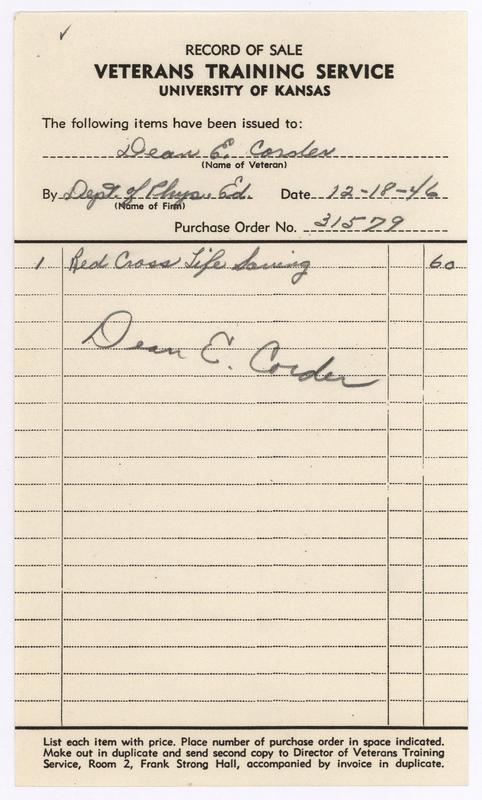 ✓
RECORD OF SALE
VETERANS TRAINING SERVICE
UNIVERSITY OF KANSAS
The following items have been issued to:
Dean E. Corder
(Name of Veteran)
By Dept. of Phys. Ed. Date 12-18-46
(Name of Firm)
Purchase Order No. 31579
1 Red Cross Life Saving 60
Dean E. Corder
List each item with price. Place number of purchase order in space indicated.
Make out in duplicate and send second copy to Director of Veterans Training
Service, Room 2, Frank Strong Hall, accompanied by invoice in duplicate.